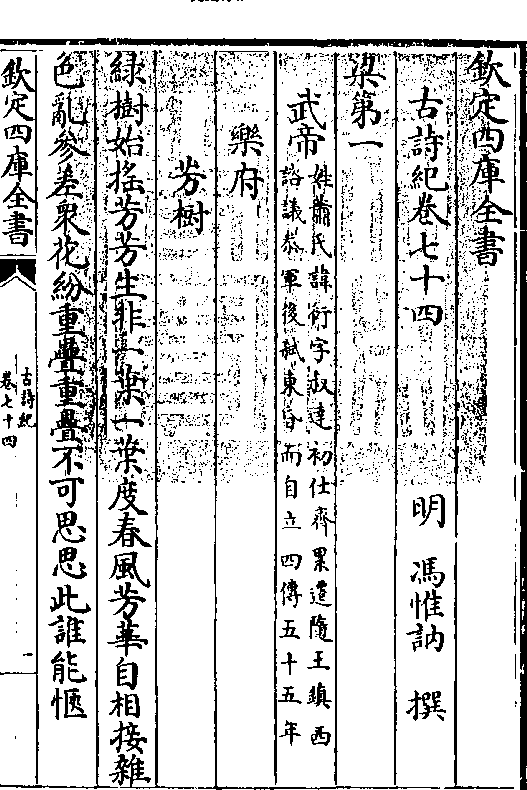 欽定四庫全書
古詩紀卷七十四 明 馮惟訥 撰
梁第一
武帝 姓蕭氏諱衍字叔達初仕齊累遷隨王鎮西
諮議叅軍後弒東昏而自立四傳五十五年
樂府
芳樹
綠樹始搖芳芳生非一葉一葉度春風芳華自相接雜
色亂參差衆花紛重疊重疊不可思思此誰能愜
欽定四庫全書
古詩紀
卷七十四
一